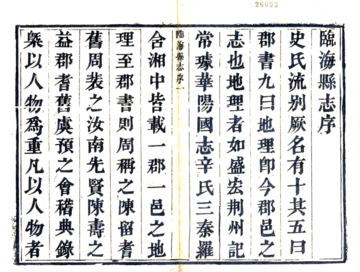 26093
臨海縣志序
史氏流别厥名有十其五曰
郡書九曰地理卽今郡邑之
志也地理者如盛宏荆州記
常璩華陽國志辛氏三秦羅
臨海縣志序 一
含湘中皆載一郡一邑之地
理至郡書則周稱之陳留耆
舊周裴之汝南先賢陳壽之
益郡耆舊虞預之會稽典錄
槩以人物爲重凡以人物者